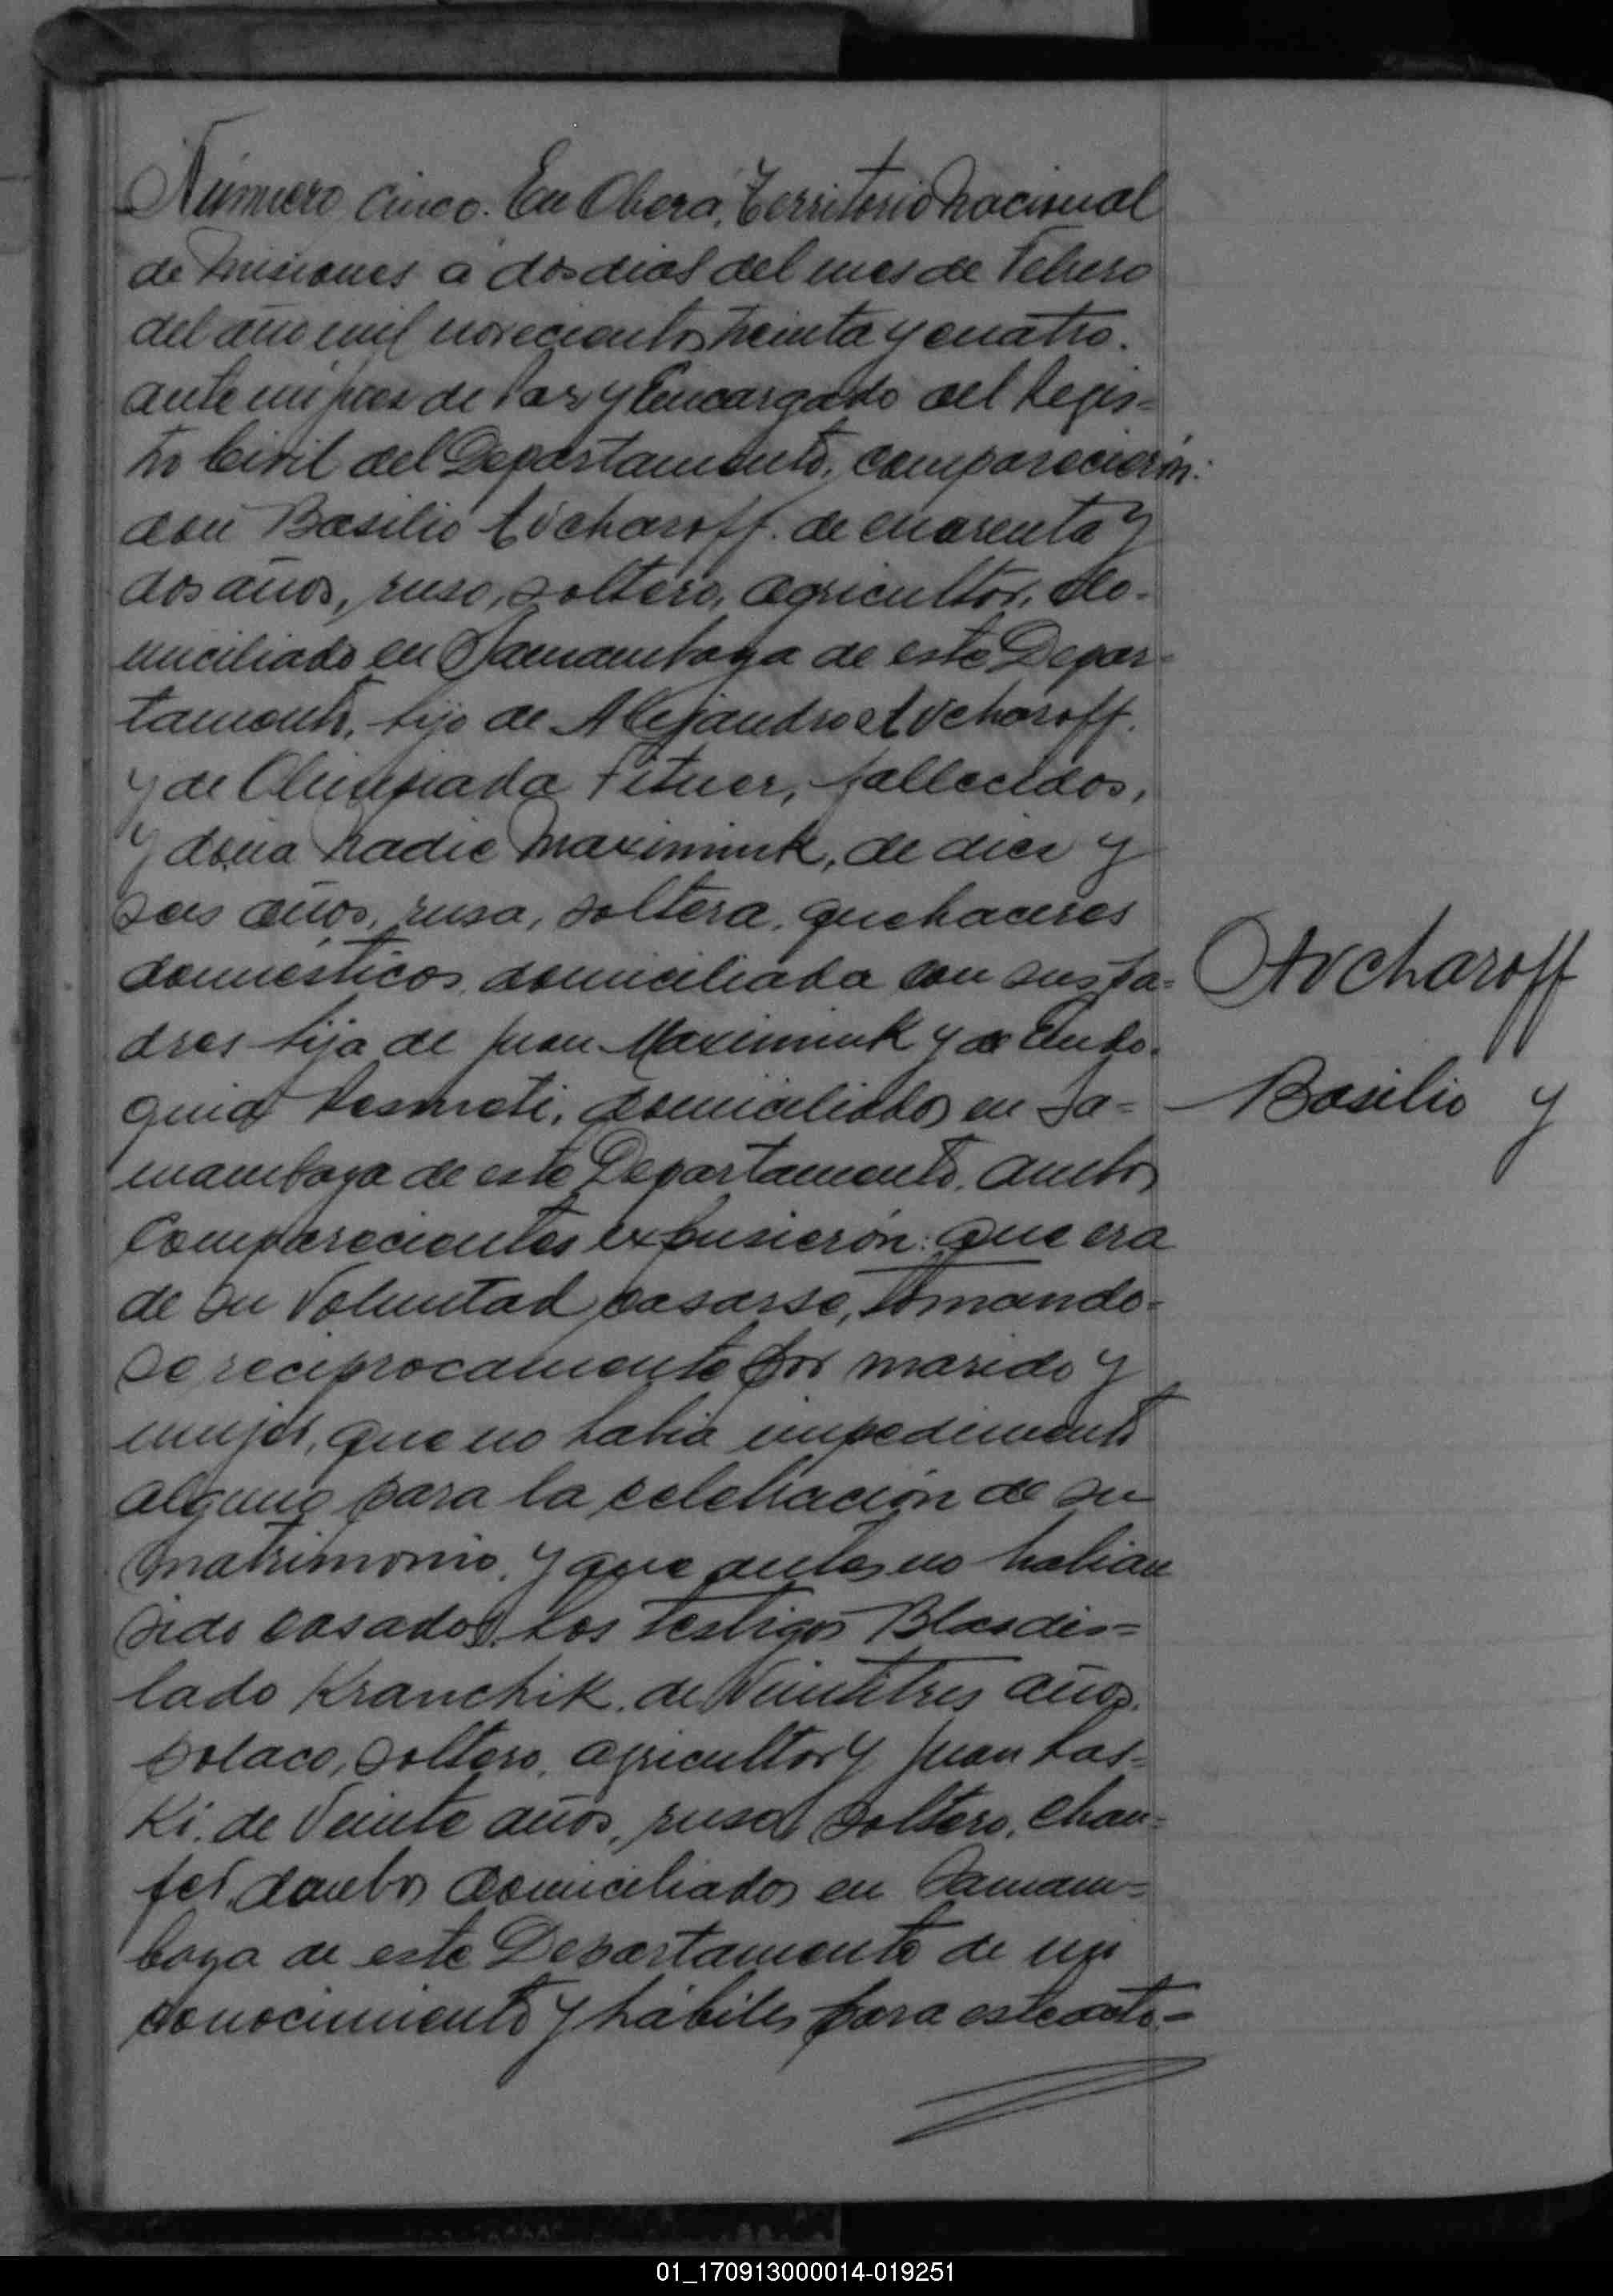 Número cinco. En Oberá, Territorio Nacional
de Misiones a dos dias del mes de Febrero
del año mil novecientos treinta y cuatro.
ante mi Juez de Paz y Encargado del Regis=
tro Civil del Departamento, comparecierón:
don Basilio Avcharoff. de cuarenta y
dos años, ruso, soltero, agricultor, do-
miciliado en Samambaya de este Depar-
tamento, hijo de Alejandro Avcharoff.
y de Olimpiada, fallecidos,
y doña Nadie Maximiuk, de diez y
seis años, rusa, soltera, quehaceres
domésticos, domiciliada con sus pa=
dres hija de Juan Maximiuk y de Eudo-
quia, domiciliados en Sa=
mambaya de este Departamento. ambos
comparecientes expusierón: que era
de su Voluntad casarse, tomando=
se reciprocamente por marido y
mujer, que no habia impedimento
alguno para la celebración de su
matrimonio, y que antes no habian
sido casados. Los testigos Bladis=
lado Kranchik. de Veintitres años.
polaco, soltero, agricultor y Juan Las-
ki. de Veinte años, ruso, soltero, chau=
fer, domiciliados en Samam=
baya de este Departamento de mi
conocimiento y hábiles para este acto.=
Avcharoff
Basilio y
01_170913000014-019251